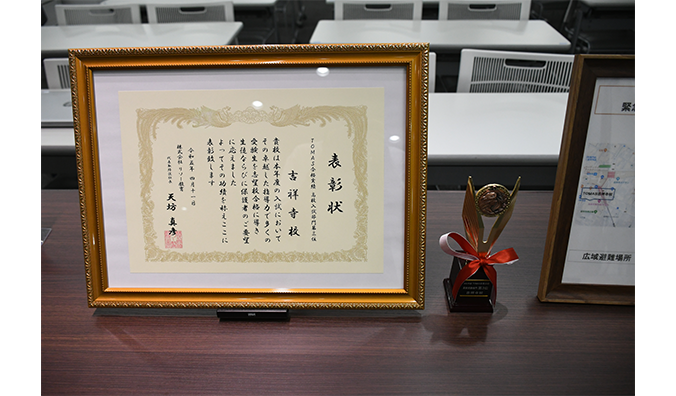 表彰状
TOMAS合格実績 高校入試部門第三位
吉祥寺校
貴校は本年度の入試において
その卓越した指導力で多くの
受験生を志望校合格に導き
生徒ならびに保護者のご要望
に応えました
よってその功績を称えここに
表彰致します
令和五年 四月十一日
株式会社 リソー教育
代表取締役社長
天坊 真彦
緊
広域避難場所